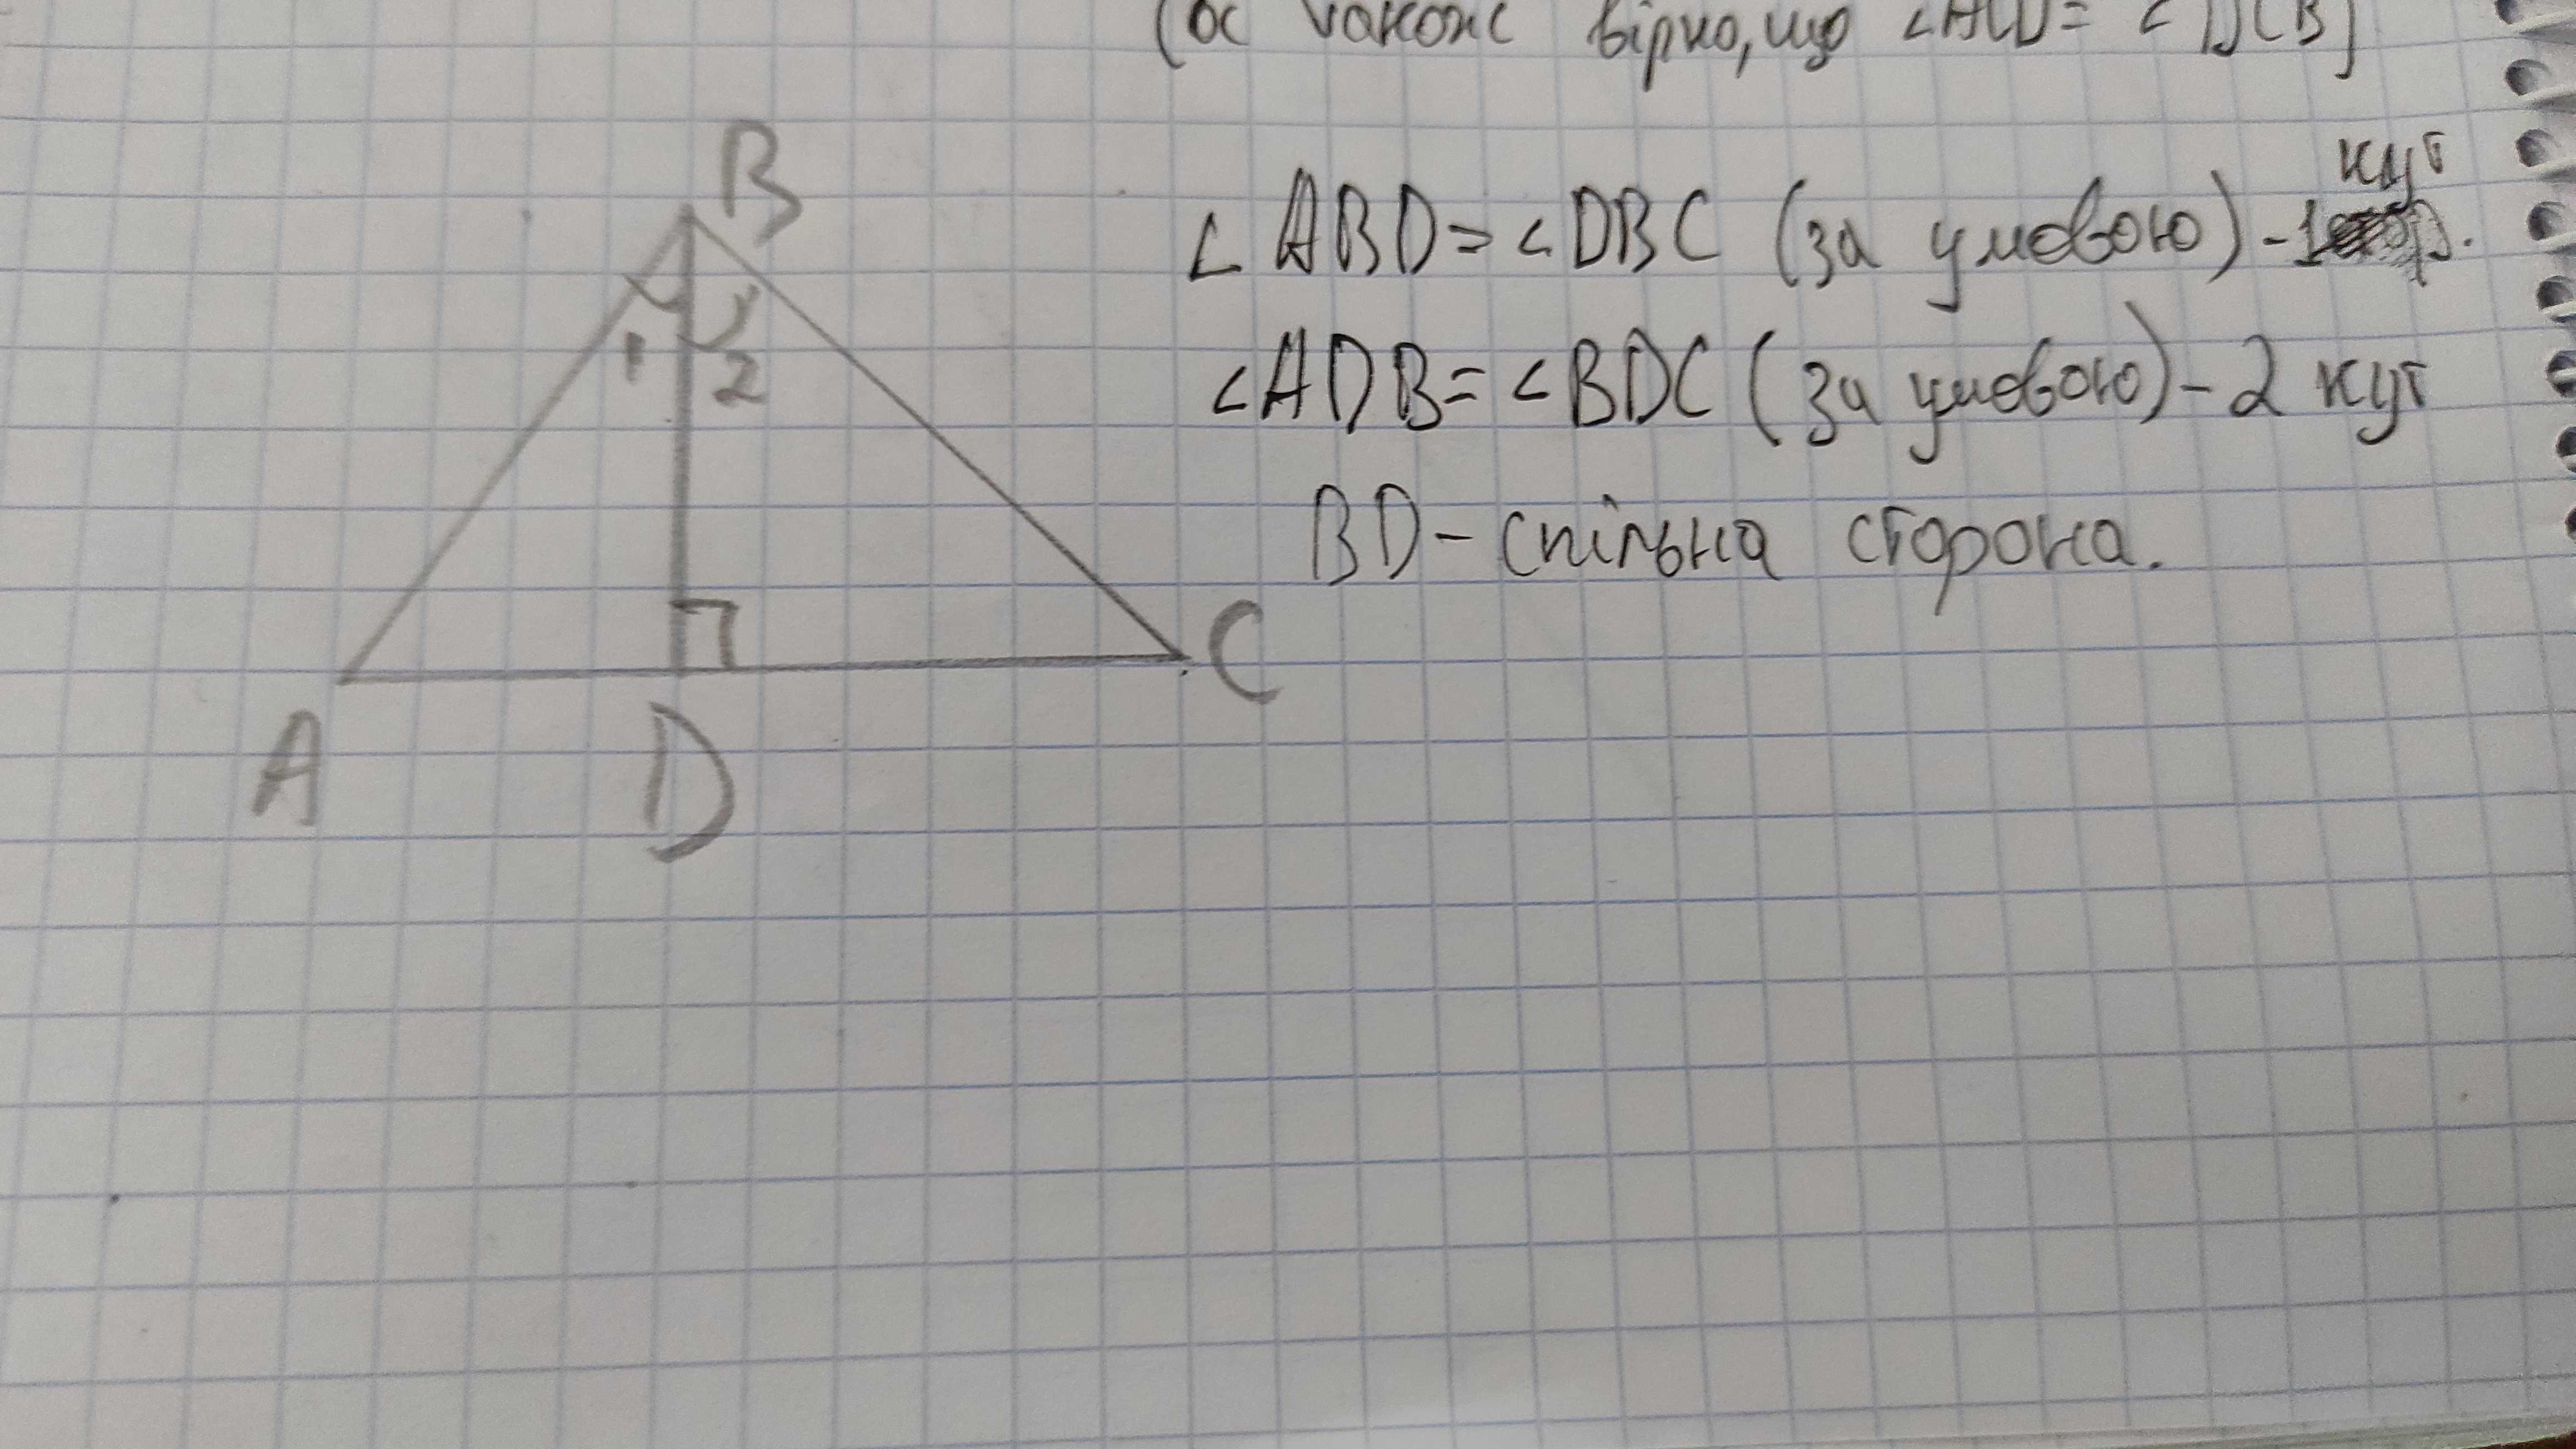 також вірно, що ∠ACD = ∠DCB)
кут
∠ABD = ∠DBC (за умовою) - 1
∠ADB = ∠BDC (за умовою) - 2 кут
BD - спільна сторона.
B
1
2
A
D
C